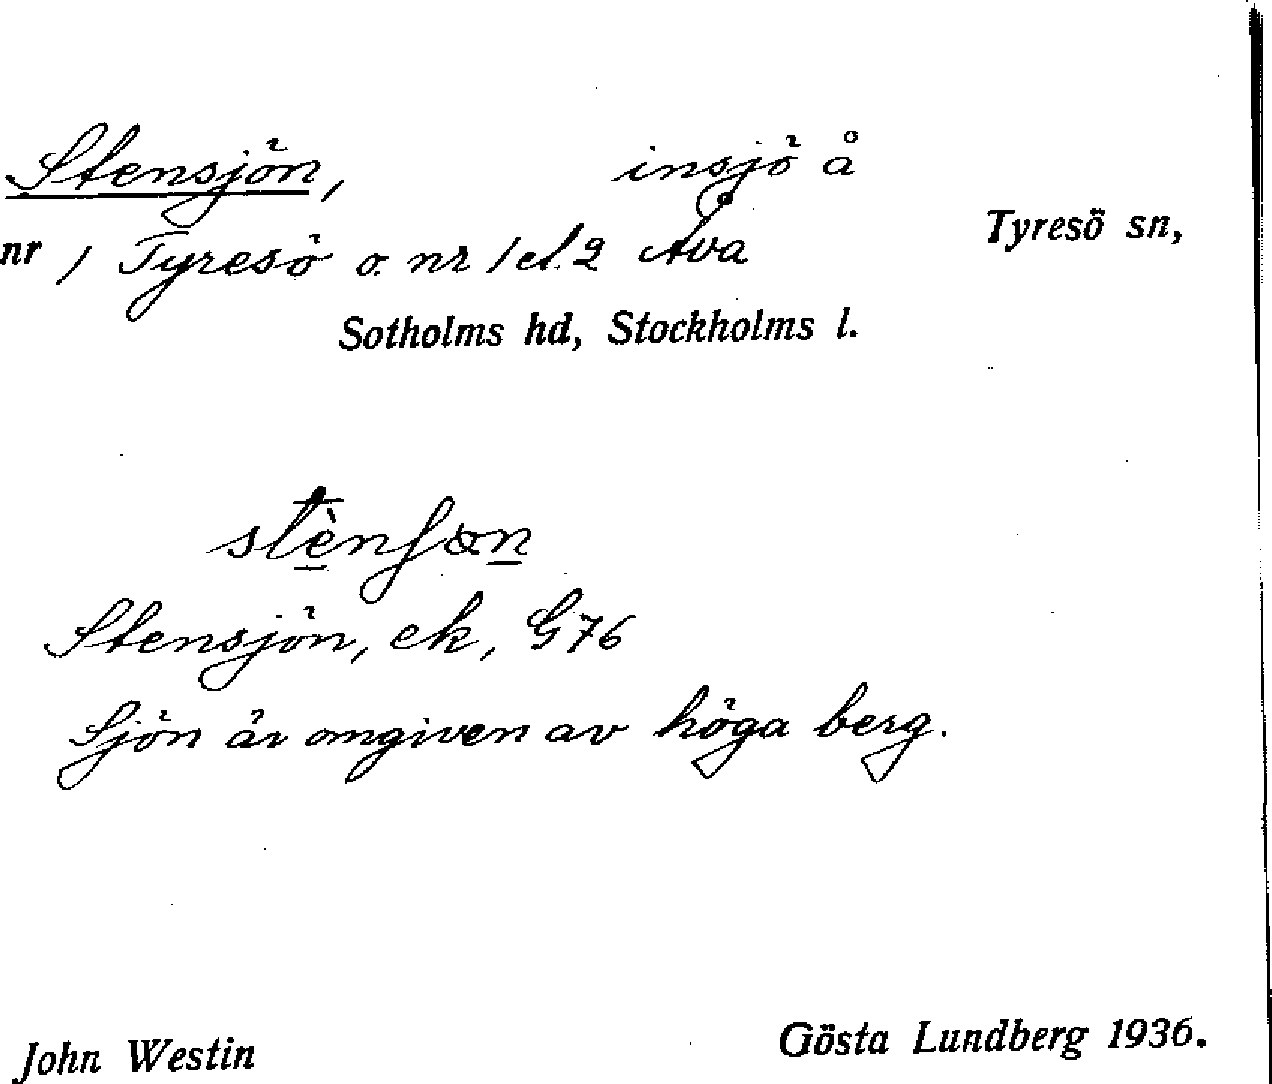 Stensjön, insjö å
nr 1 Tyresö o. nr 1 el. 2 Åva Tyresö sn,
Sotholms hd, Stockholms l.
Stensjön, ek, G76
Sjön är omgiven av höga berg.
John Westin Gösta Lundberg 1936.